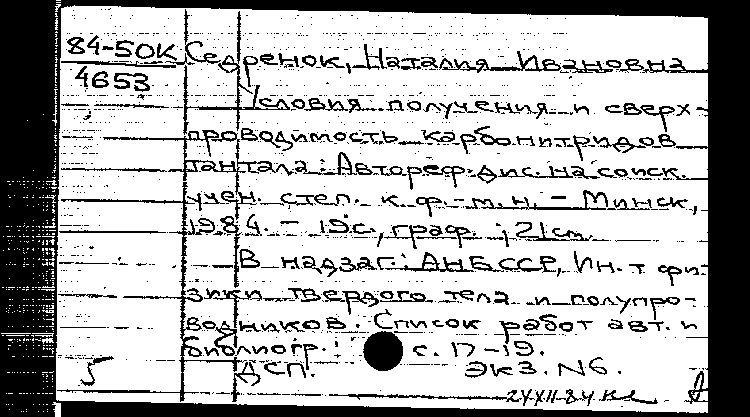 84-50К
4653
Седренок, Наталия Ивановна
Условия получения и сверх-
проводимость карбонитридов
тантала: Автореф. дис. на соиск.
учен. степ. к. ф.-м. н. - Минск,
1984. - 19с., граф. ; 21см.
В надзаг.: АН БССР, Ин-т фи-
зики твердого тела и полупро-
водников. Список работ авт. и
библиогр.: с. 17-19.
5
ДСП.
Экз. N6.
2YXII-84